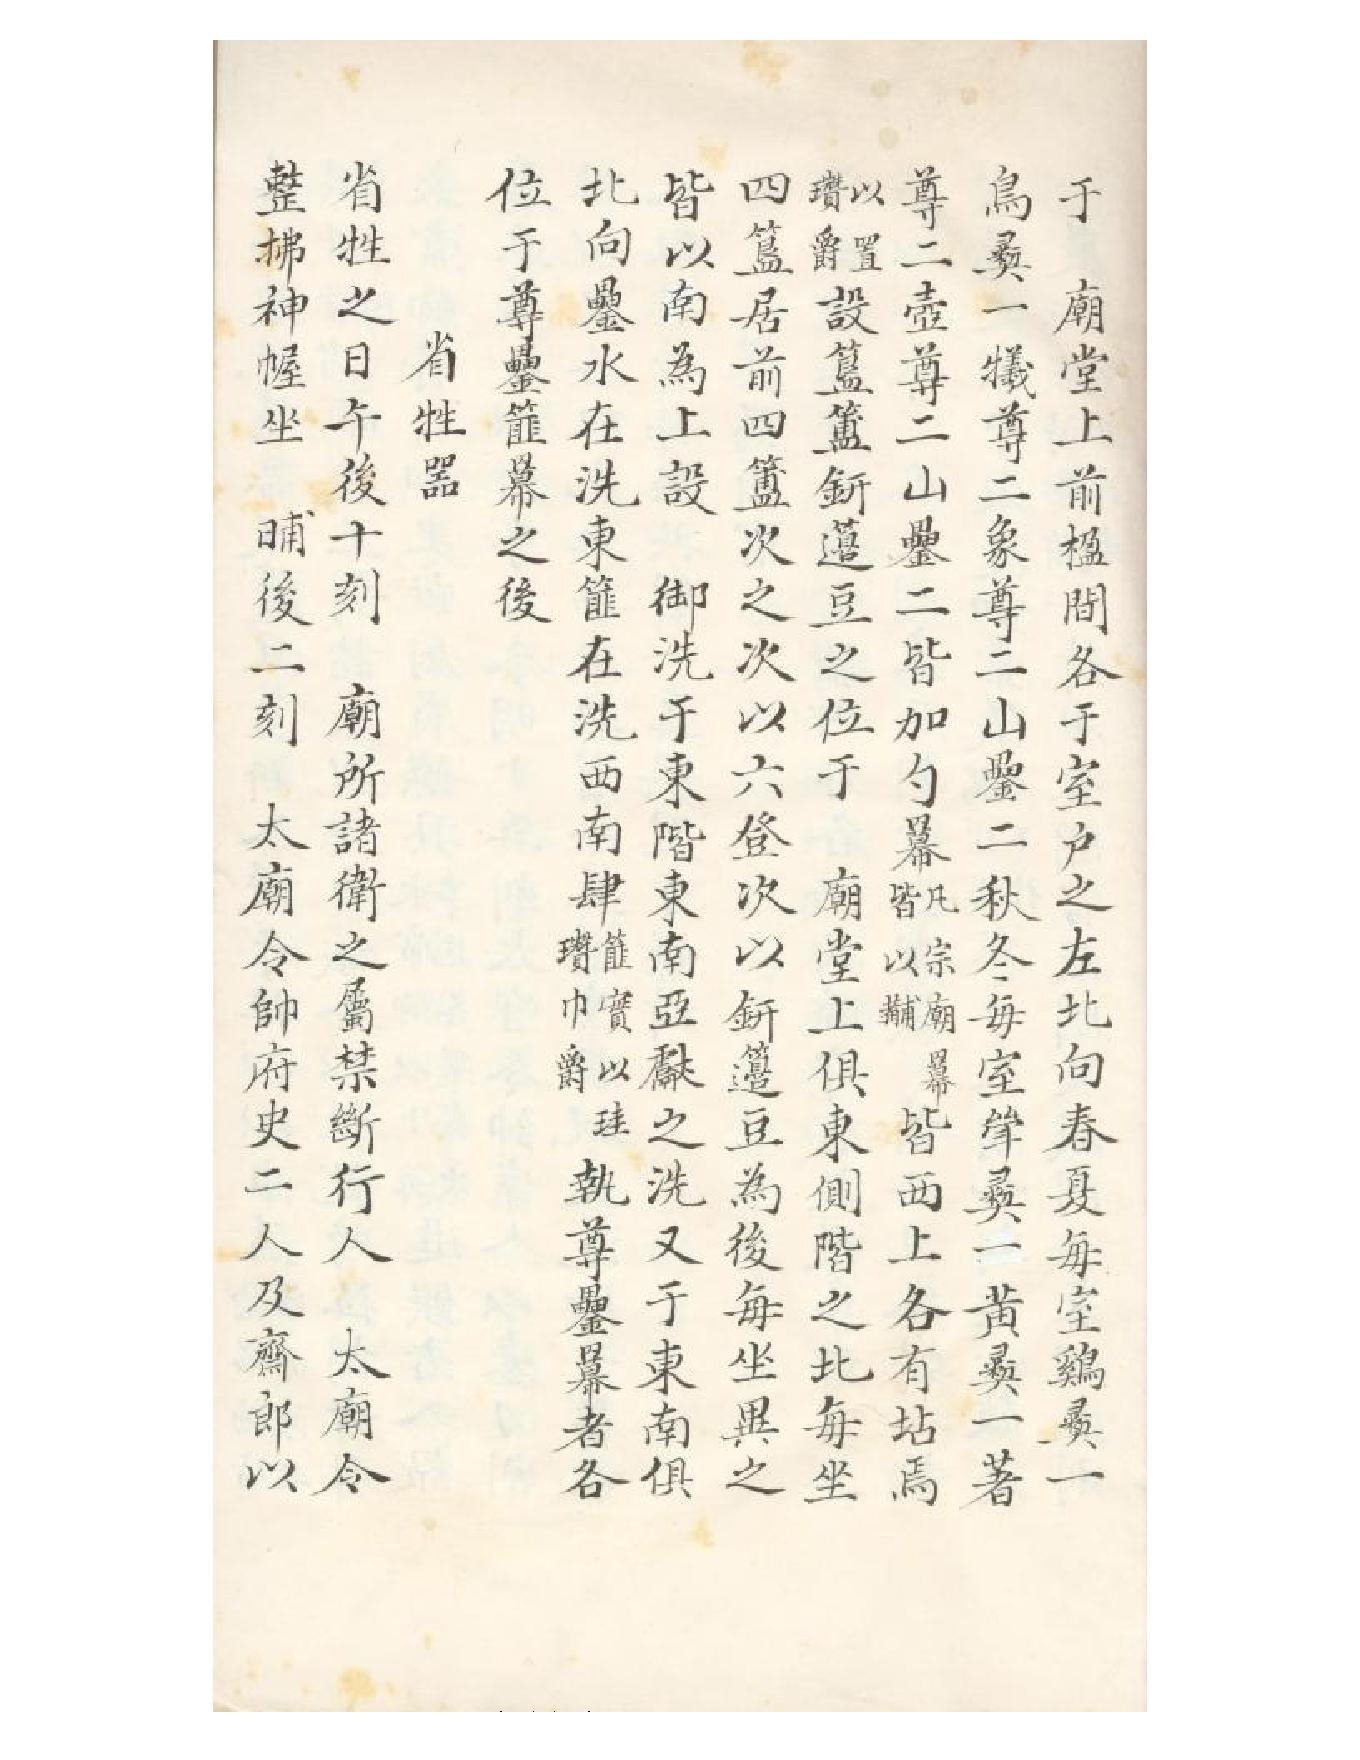 于　廟堂上前楹間各于室戶之左北向春夏每室鷄彝一
鳥彝一犧尊二象尊二山罍二秋冬每室斝彝一黃彝一著
尊二壺尊二山罍二皆加勺羃凡宗廟羃皆以黼皆西上各有坫焉
以置瓚爵設簋簠鈃籩豆之位于　廟堂上俱東側階之北每坐
四簋居前四簠次之次以六登次以鈃籩豆為後每坐異之
皆以南為上設　御洗于東階東南亞獻之洗又于東南俱
北向罍水在洗東篚在洗西南肆篚實以珪瓚巾爵執尊罍羃者各
位于尊罍篚羃之後
省牲器
省牲之日午後十刻　廟所諸衛之屬禁斷行人　太廟令
整拂神幄坐　晡後二刻　太廟令帥府史二人及齋郎以